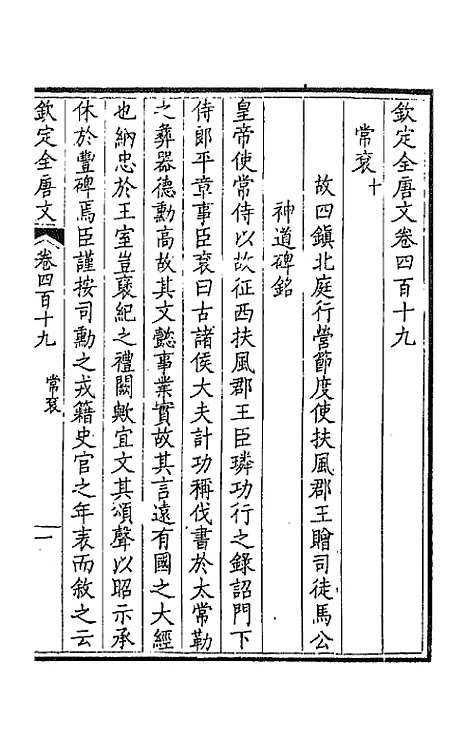 欽定全唐文卷四百十九
常袞十
故四鎮北庭行營節度使扶風郡王贈司徒馬公
神道碑銘
皇帝使常侍以故征西扶風郡王臣璘功行之錄詔門下
侍郎平章事臣袞曰古諸侯大夫計功稱伐書於太常勒
之彝器德勳高故其文懿事業實故其言遠有國之大經
也納忠於王室豈褒紀之禮闕歟宜文其頌聲以昭示承
休於豐碑焉臣謹按司勳之戎籍史官之年表而敘之云
欽定全唐文
卷四百十九
常袞
一